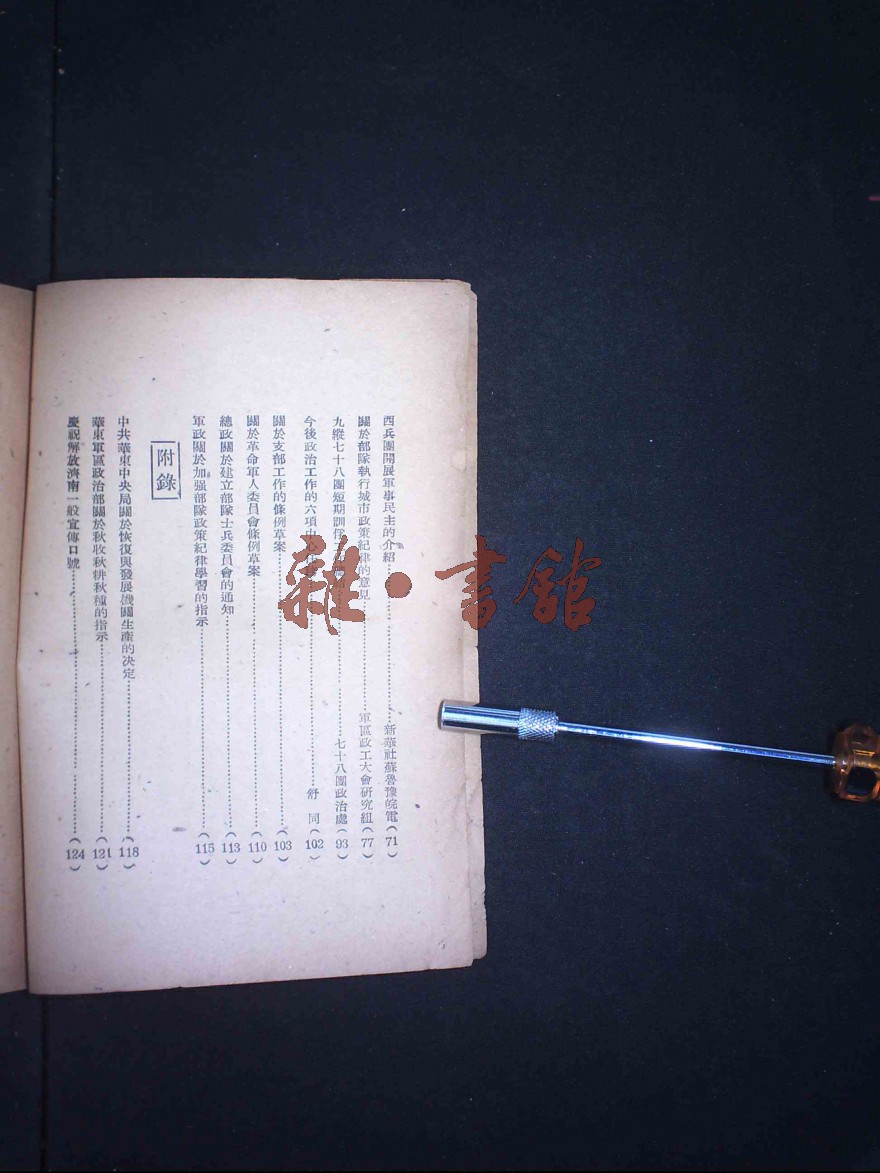 西兵團開展軍事民主的介紹……新華社蘇魯豫皖電(71)
關於部隊執行城市政策紀律的意見……軍區政工大會研究組(77)
九縱七十八團短期訓……七十八團政治處(93)
今後政治工作的六項中心……舒同(102)
關於支部工作的條例草案……(103)
關於革命軍人委員會條例草案……(110)
總政關於建立部隊士兵委員會的通知……(113)
軍政關於加强部隊政策紀律學習的指示……(115)
附錄
中共華東中央局關於恢復與發展機關生產的決定……(118)
華東軍區政治部關於秋收秋耕秋種的指示……(121)
慶祝解放濟南一般宣傳口號……(124)
雜·書館